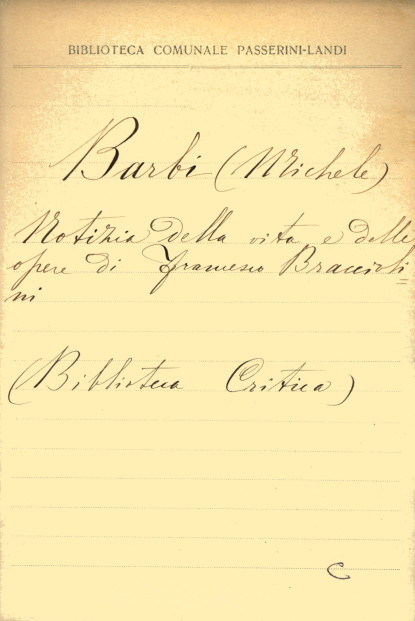 BIBLIOTECA COMUNALE PASSERINI-LANDI
Barbi (Michele)
Notizia della vita e delle
opere di Francesco Bracioli=
ni
(Biblioteca Critica)
C